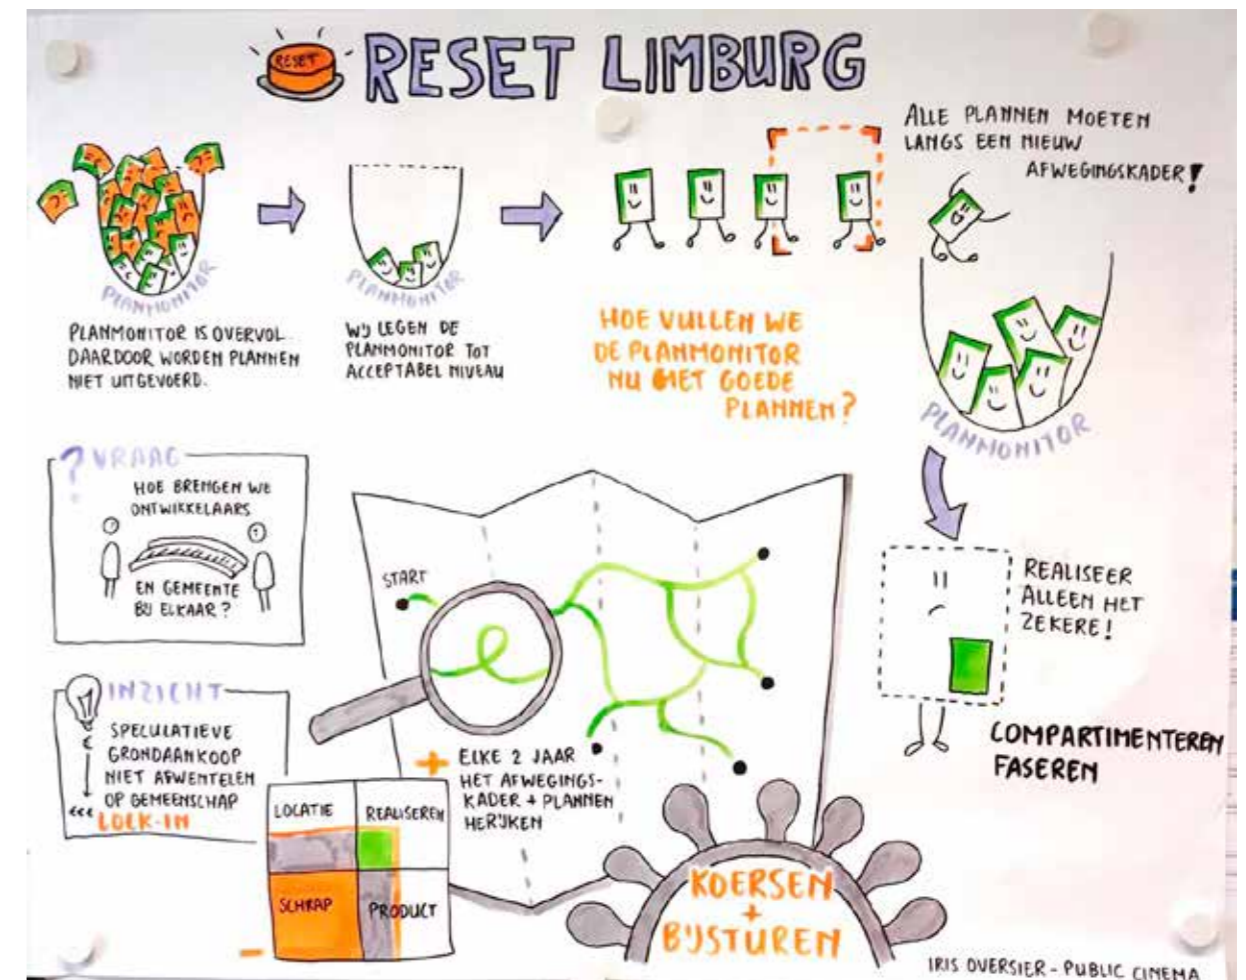 RESET
RESET LIMBURG
PLANMONITOR
PLANMONITOR IS OVERVOL
DAARDOOR WORDEN PLANNEN
NIET UITGEVOERD.
PLANMONITOR
WIJ LEGEN DE
PLANMONITOR TOT
ACCEPTABEL NIVEAU
HOE VULLEN WE
DE PLANMONITOR
NU MET GOEDE
PLANNEN?
ALLE PLANNEN MOETEN
LANGS EEN NIEUW
AFWEGINGSKADER!
PLANMONITOR
REALISEER
ALLEEN HET
ZEKERE!
COMPARTIMENTEREN
FASEREN
? VRAAG
HOE BRENGEN WE
ONTWIKKELAARS
EN GEMEENTE
BIJ ELKAAR?
INZICHT
SPECULATIEVE
GRONDAANKOOP
NIET AFWENTELEN
OP GEMEENSCHAP
€
<<< LOCK-IN
START
+ ELKE 2 JAAR
HET AFWEGINGS-
KADER + PLANNEN
HERIJKEN
LOCATIE
REALISEREN
SCHRAP
PRODUCT
-
KOERSEN
+
BIJSTUREN
IRIS OVERSIER - PUBLIC CINEMA